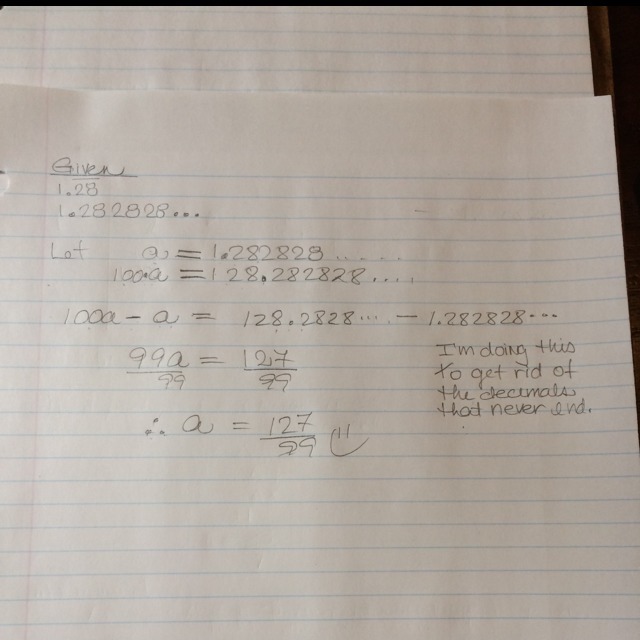 Given
1.28
1.282828...
Let a = 1.282828......
100a = 128.282828....
100a - a = 128.2828.... - 1.282828...
99a/99 = 127/99
I'm doing this
to get rid of
the decimals
that never end.
∴ a = 127/99